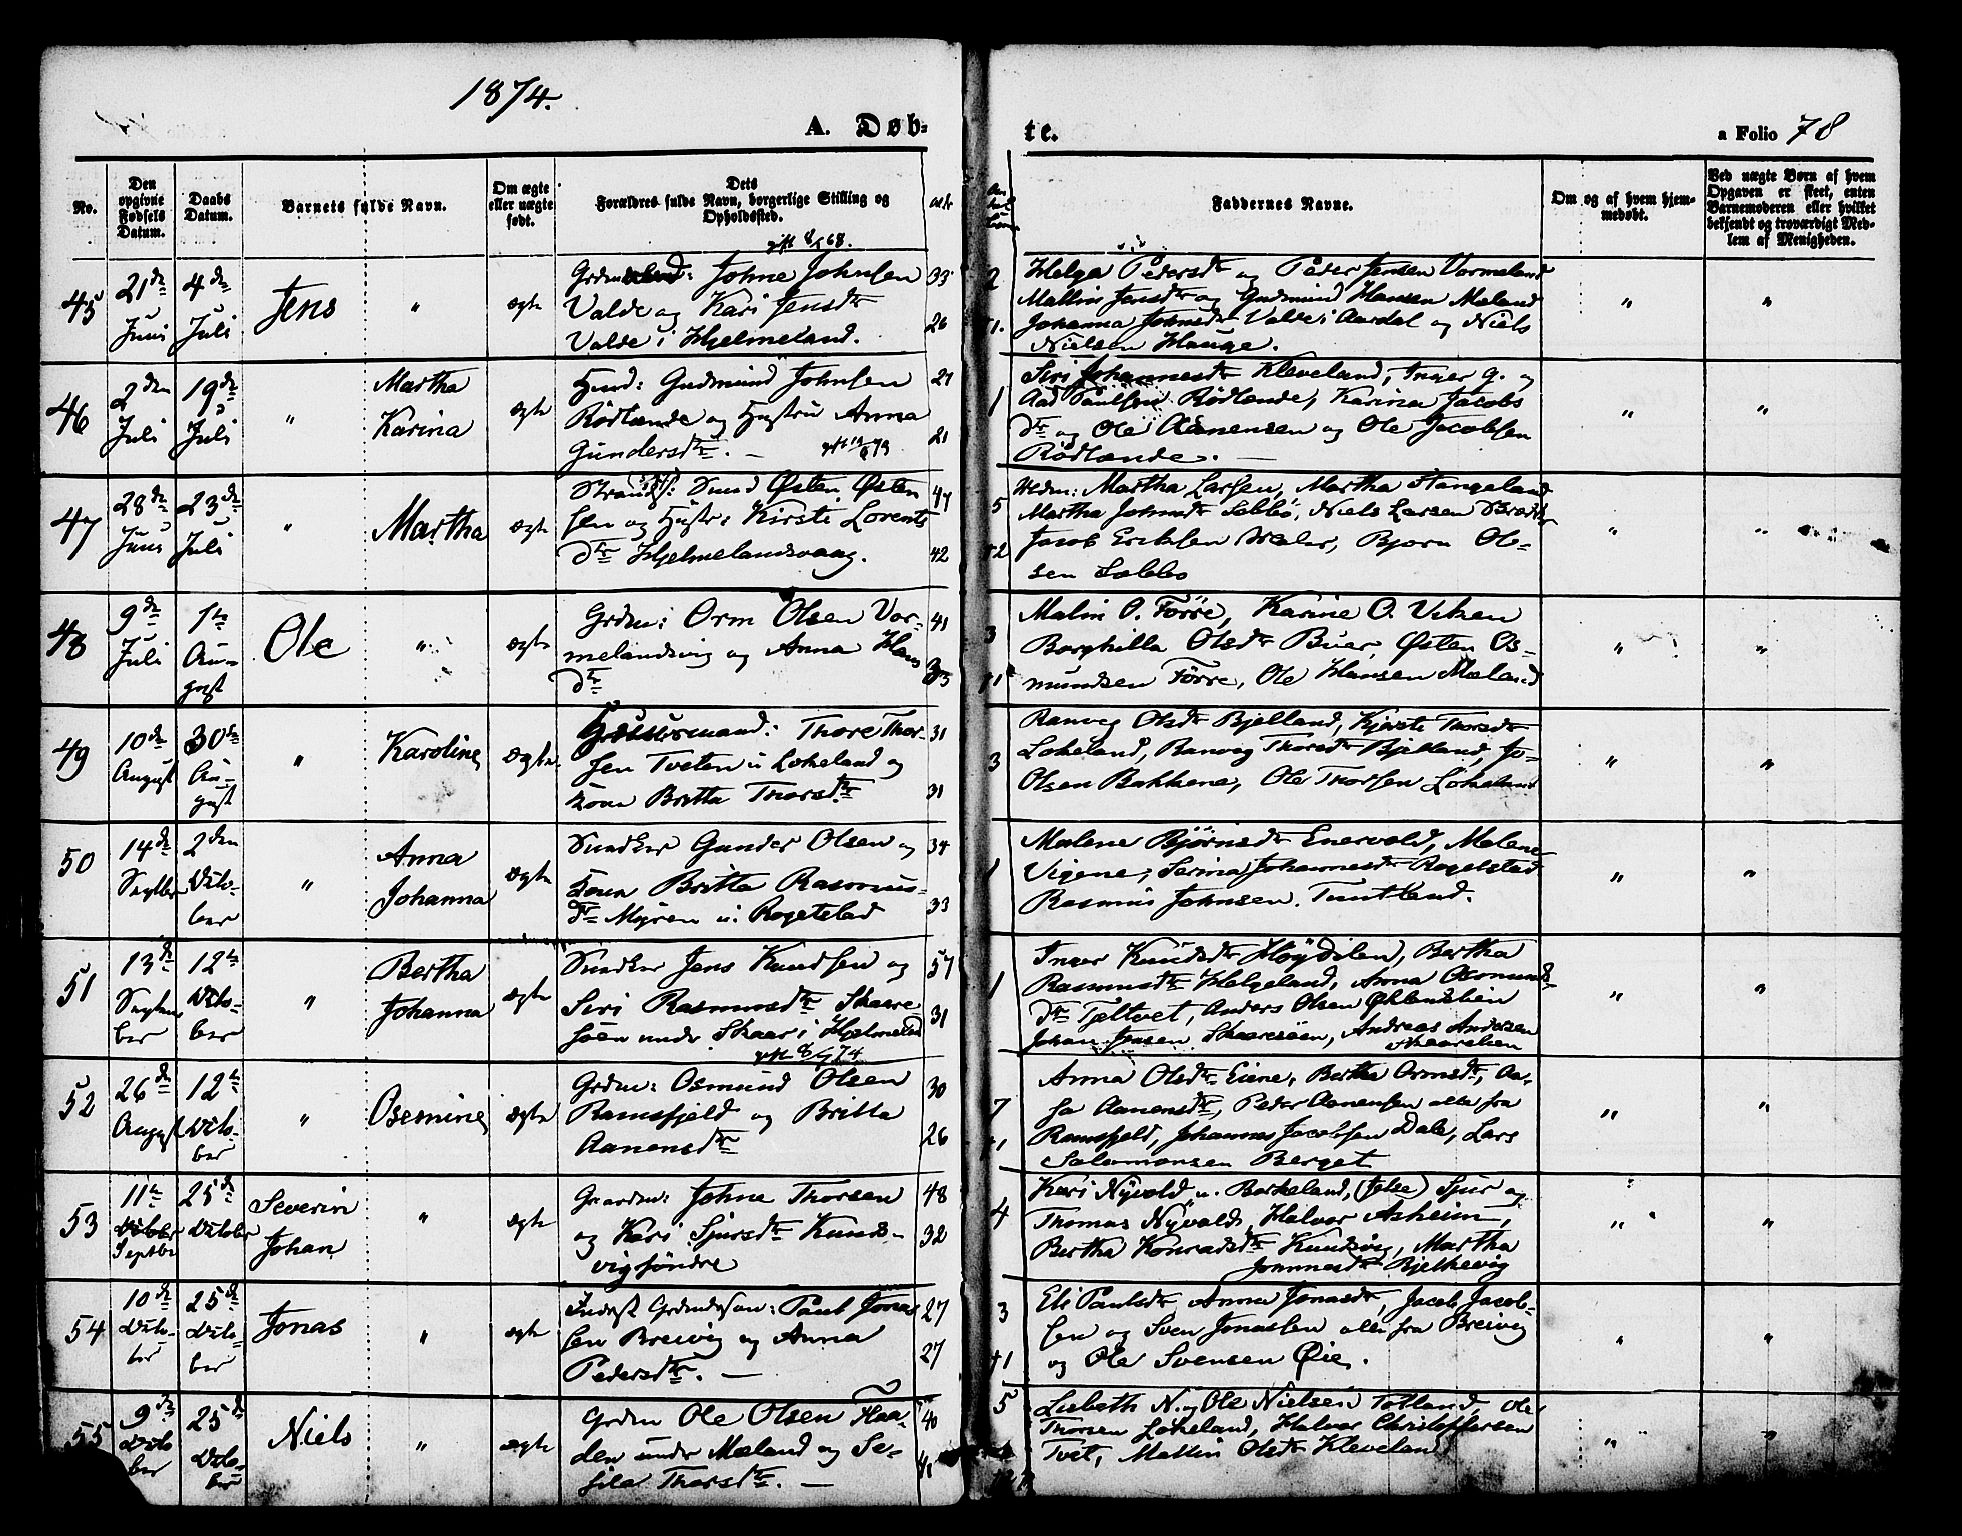 1874.
A. Døb-
te.
a Folio 78
No.
Den
opgivne
Fødsels
Datum.
Daabs
Datum.
Barnets fulde Navn.
Om ægte
eller uægte
født.
Dets
Forældres fulde Navn, borgerlige Stilling og
Opholdssted.
Faddernes Navne.
Om og af hvem hjem-
medøbt.
Ved uægte Børn af hvem
Opgaven er skeet, enten
Barnemoderen eller hvilket
bekjendt og troværdigt Med-
lem af Menigheden.
45
21de
Juni
4de
Juli
Jens
"
ægte
gift 8/6 68.
Grdmd: Johne Johnsen
Valde og Kari Jensdtr
Valde i Hjelmeland.
33
26
2
+1.
Helga Pedersdtr og Peder Jensen Vormeland
Mallin Jensdtr og Gudmund Hansen Mæland
Johanna Johnsdtr Valde i Aardal og Niels
Nielsen Hauge.
"
"
46
2den
Juli
19de
Juli
"
Martha
Karina
ægte
Husd: Gudmund Johnsen
Rödlænde og Hustru Anna
Gundersdtr. —
21
21
1
Siri Johannesdtr Kleveland, Inger G. og
Aad Paulsen Rødlænde, Karina Jacobs
dtr og Ole Aanensen og Ole Jacobsen
Rødlænde. —
"
"
47
28de
Juni
23de
Juli
"
Martha
ægte
Strands: Sund Østen Østen
sen og Hustr: Kirsti Lorents
dtr Hjelmelandsvaag.
47
42
5
+2
Martha Larsen, Martha Stangeland
Martha Johnsdtr Sæbbø, Niels Larsen
Jacob Eriksen Bjorn Ol-
sen Sæbbø
"
"
48
9de
Juli
1te
Au-
gust
Ole
"
ægte
Grdm: Orm Olsen Vor-
melandsvig og Anna Hans
dtr
41
35
3
+1
Malin O. Førre, Karine O. Viken
Borghilla Olsdtr Buer, Østen Os-
mundsen Førre, Ole Hansen Mæland
"
"
49
10de
August
30te
Au-
gust
"
Karoline
ægte
Thore Thor-
sen Tveten u Løkeland og
Kona Britta Thorsdtr
31
31
3
Ranveg Olsdtr Bjelland, Kjersti Thorsdtr
Løkeland, Ranveg Thorsdtr Bjelland, Jo-
Olsen Bakkene, Ole Thorsen Løkeland
"
"
50
14de
Septber
2den
Octo-
ber
"
Anna
Johanna
ægte
Snedker Gunder Olsen og
Kona Britta Rasmus-
dtr Myren u. Rogelstad
34
33
1
Malene Bjørnsdtr Enervold, Malene
Vigene, Serina Johannesdtr Rogelstad
Rasmus Johnsen Tuntland.
"
"
51
13de
Septem
ber
12te
Octo-
ber
"
Bertha
Johanna
ægte
Snedker Jens Knudsen og
Siri Rasmusdtr Skaare-
søen under Skaar i Hjelmeland
57
31
1
Inger Knudsdtr Høydalen, Bertha
Rasmusdtr Helgeland, Anna Osmunds
dtr Tjeltvet, Anders Olsen Øklandslien
Johan Jensen Skaaresøen, Andreas Andersen
Skaarelien
"
"
52
26de
August
12te
Octo-
ber
"
Osemine
ægte
gift 8/6 74
Grdm: Osmund Olsen
Ramsfjeld og Britta
Aanensdtr
30
26
7
+1
Anna Olsdtr Eiene, Bertha Ormsdtr, Aa-
sa Aanensdtr, Peder Aanensen alle fra
Ramsfjeld, Johannes Jacobsen Dale, Lars
Salomonsen Berget
"
"
53
11te
Septbr
25de
Octobr
Severin
Johan
"
ægte
Gaardm: Johne Thorsen
og Kari Sjursdtr Knuds-
vigsøndre
48
32
4
Kari Nyvold u. Borkeland, (Jelse) Sjur og
Thomas Nyvold, Halvor Asheim,
Bertha Konradsdtr Knudsvig, Martha
Johannesdtr Bjelkevig
"
"
54
10de
Octo-
ber
25de
Octo-
ber
Jonas
"
ægte
Inderst Grdmdsøn: Paul Jonas
sen Breivig og Anna
Pedersdtr. —
27
27
3
+1
Eli Paulsdtr, Anna Jonasdtr, Jacob Jacob-
sen og Sven Jonassen alle fra Breivig
og Ole Svensen Øie.
"
"
55
9de
Octo
ber
25de
Octo-
ber
Niels
"
ægte
Grdm Ole Olsen Haa-
den under Mæland og Se-
sile Thorsdtr. —
40
41
5
Lisbeth N. og Ole Nielsen Totland, Ole
Thorsen Løkeland, Halvor Christoffersen
Tvet, Mallin Olsdtr Kleveland
"
"